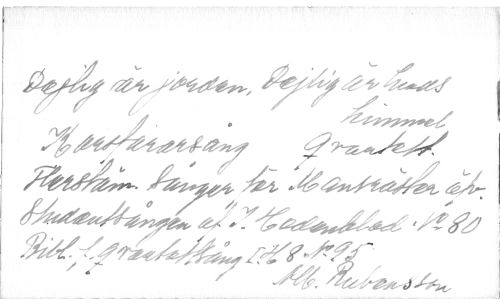 Dejlig är jorden, Dejlig är Guds
himmel
Korsfararsång Qvartett.
Flerstäm. Sånger för Mansröster utg.
Studentsången af I. Hedenblad. No 80
Bibl. f. Qvartettsång I. H 8 No 95
Alb. Rubensson